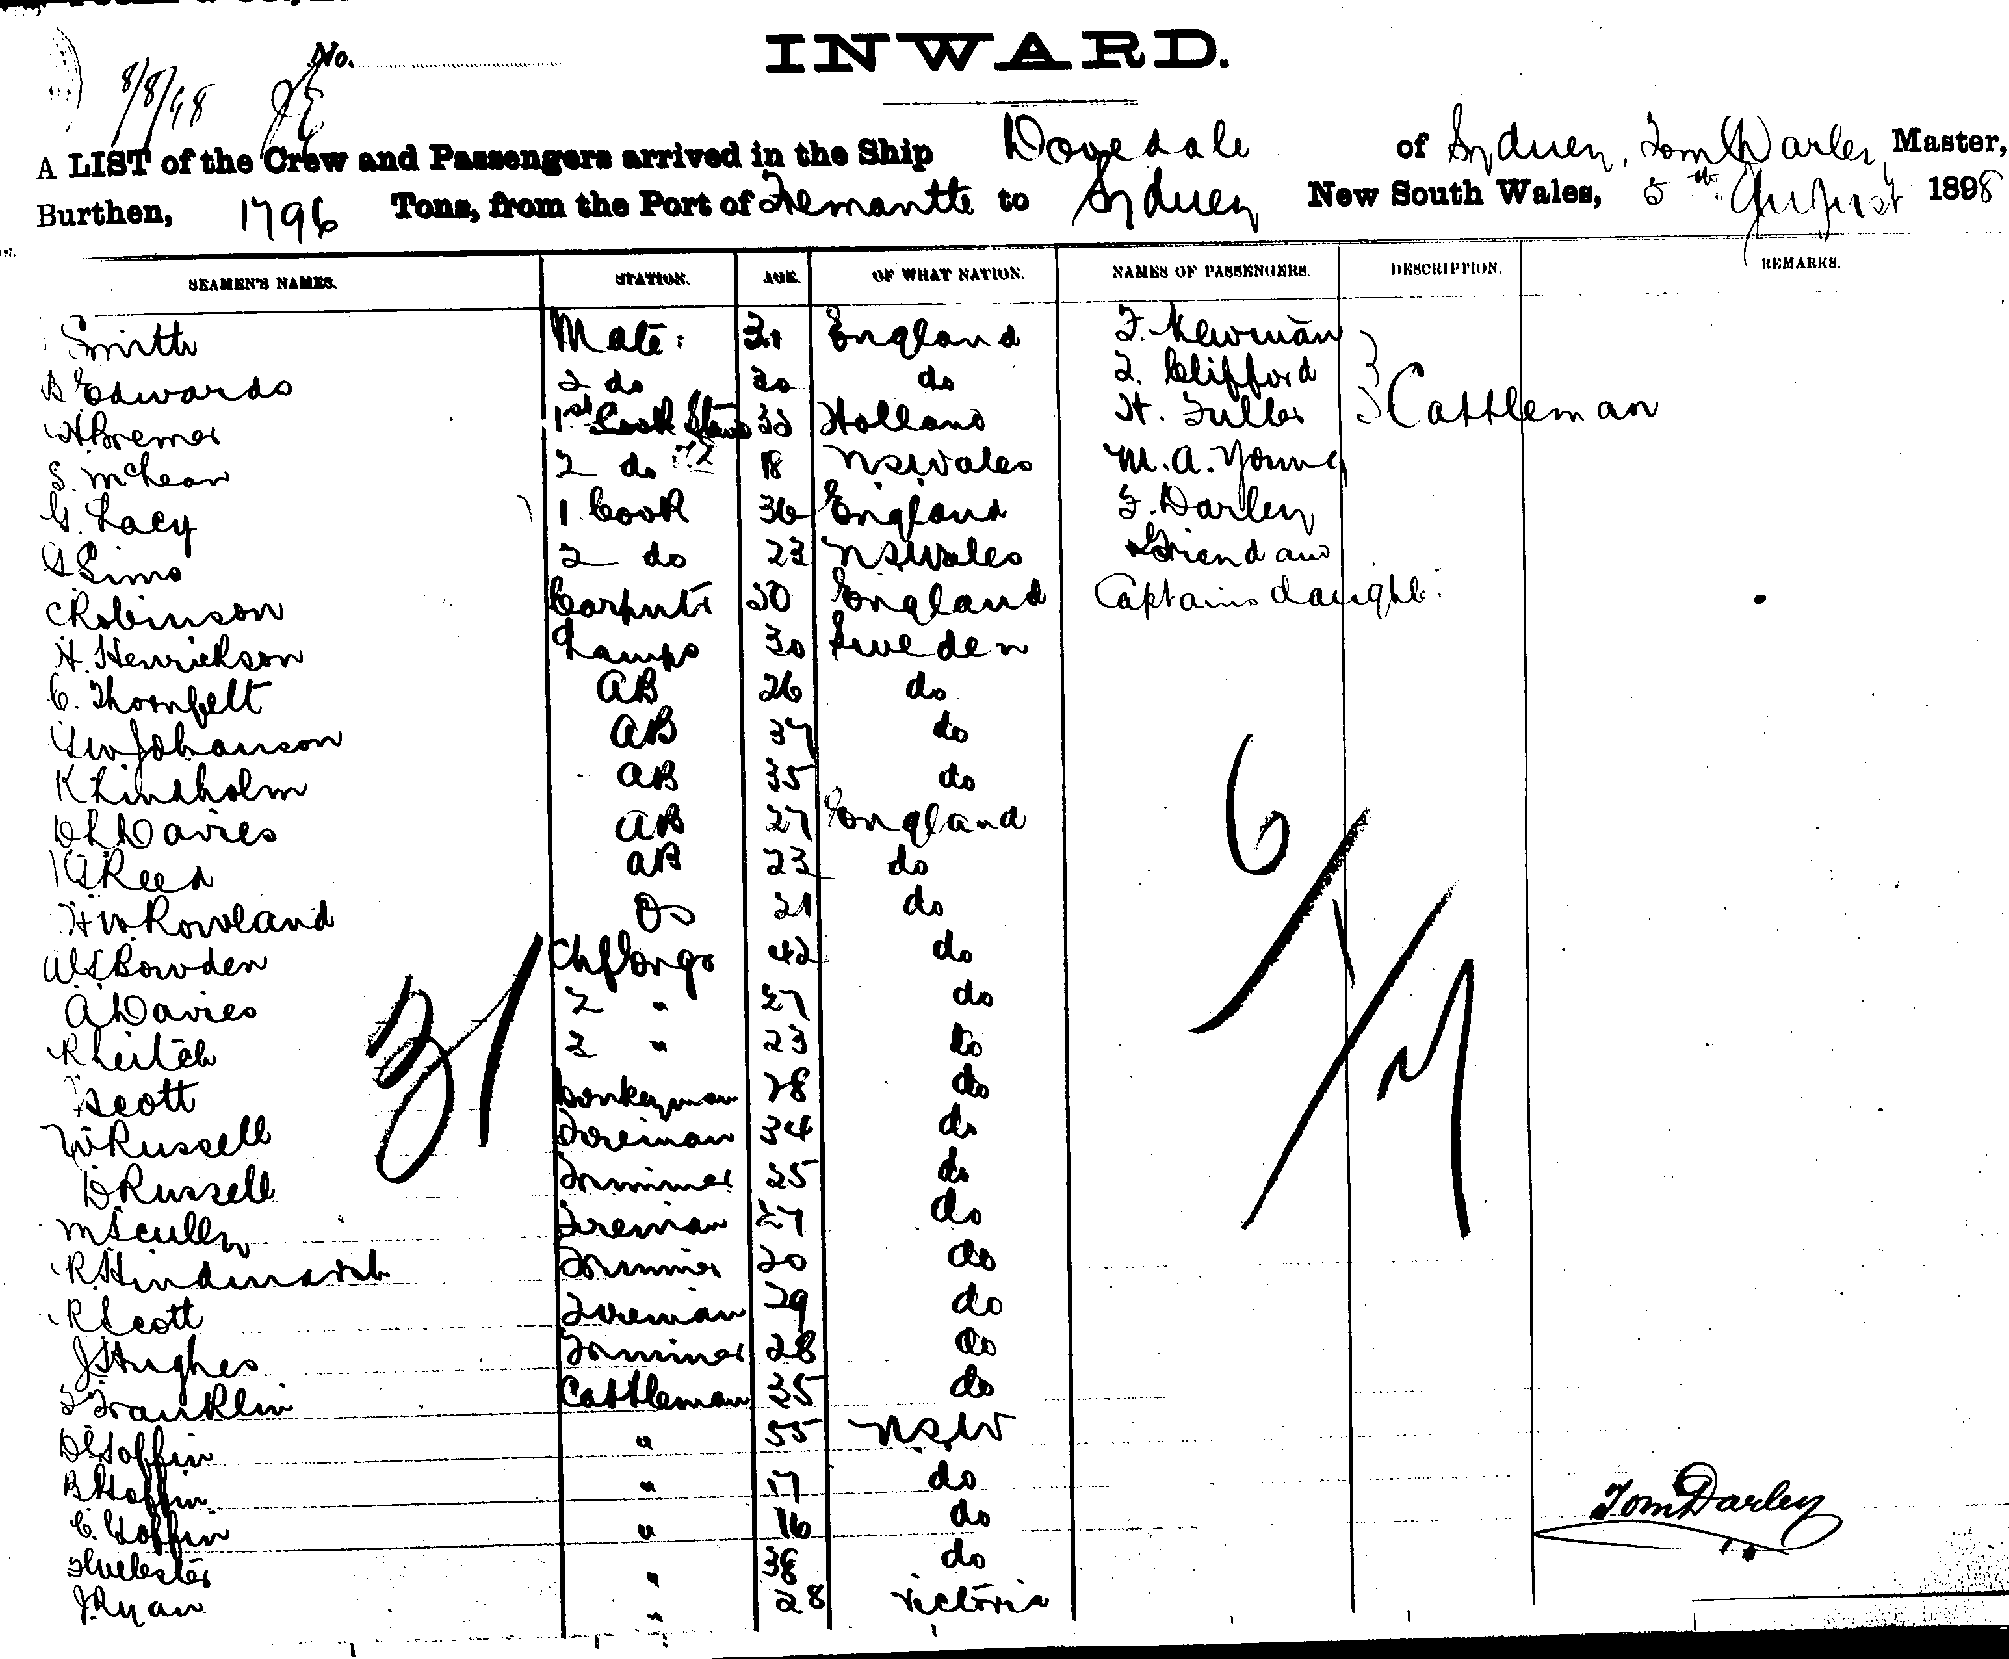 No.
INWARD.
8/8/98
A LIST of the Crew and Passengers arrived in the Ship Dovedale of Sydney, Tom Darley Master,
Burthen, 1796 Tons, from the Port of Fremantle to Sydney New South Wales, 5th August 1898
SEAMEN'S NAMES. STATION. AGE. OF WHAT NATION. NAMES OF PASSENGERS. DESCRIPTION. REMARKS.
Smith Mate: England F. Newman
Edwards 2 do do Clifford
H Bremer 1st Cook 33 Holland H. Fuller Cattleman
S. McLean 2 do 18 NSWales M. A. Young
G. Lacy 1 Cook 36 England F. Darley
A Sims 2 do 23 NSWales Friend and
C Robinson Carpntr 50 England Captains daught.
H. Henrickson Lamps 30 Sweden
C. Thornfelt AB 26 do
G W Johanson AB 37 do
K Lindholm AB 35 do
D L Davies AB 27 England
Reed AB 23 do
H W Rowland OS 21 do
W S Bowden Chf Eng 42 do
A Davies 2 " 27 do
R Leitch 3 " 23 do
Scott Donkeyman 28 do
W Russell Fireman 34 do
D Russell Trimmer 25 do
M Scully Fireman 27 do
R Hindmarch Trimmer 20 do
R Scott Fireman 29 do
J Hughes Trimmer 28 do
F Franklin Cattleman 35 do
D Goffin " 55 NSW
Goffin " 17 do
C. Goffin " 16 do
" 38 do
J Ryan " 28 Victoria
31
6
Tom Darley